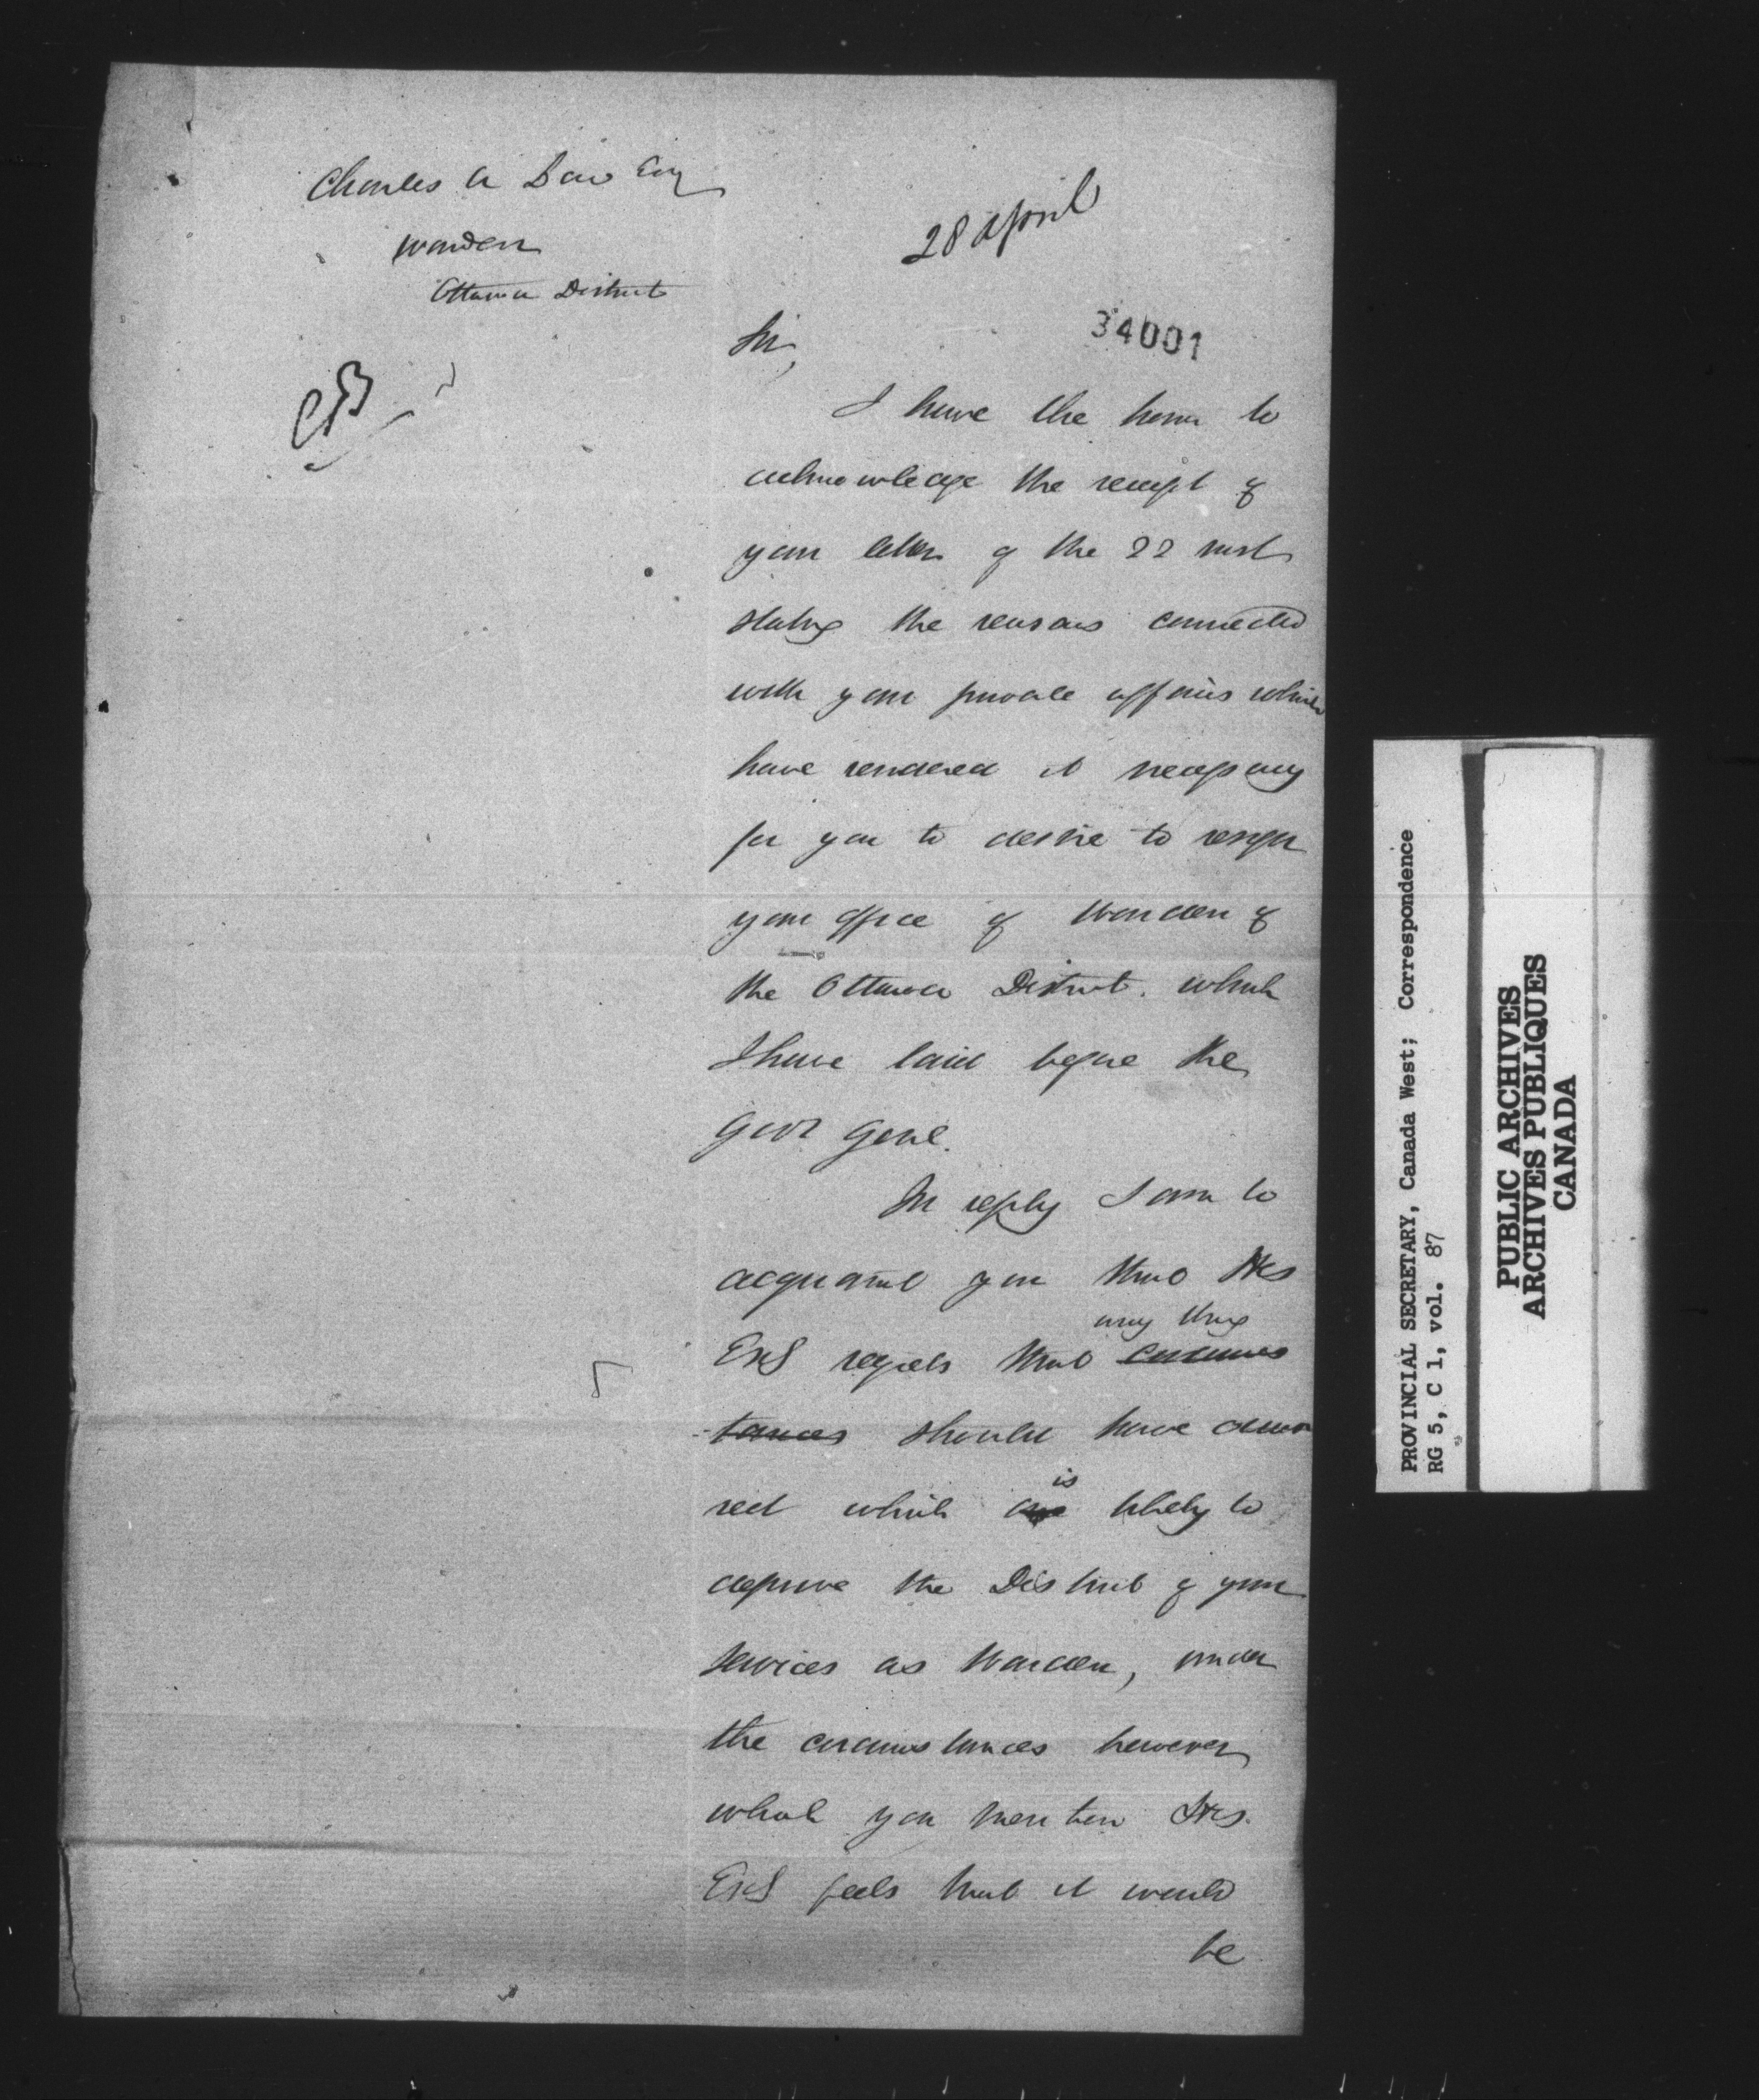 Charles A Low Esq
Warden
Ottawa District
28 April
34001
Sir,
I have the honor to
acknowledge the receipt of
your letter of the 22 inst
stating the reasons connected
with your private affairs which
have rendered it necessary
for you to desire to resign
your office of Warden of
the Ottawa District. which
I have laid before the
Govr Genl.
In reply I am to
acquaint you that His
any thing
Exc regrets that circums
-tances should have occur
red which are is likely to
deprive the District of your
services as Warden, under
the circumstances however
which you mention His.
Exc feels that it would
be
PROVINCIAL SECRETARY, Canada West; Correspondence
RG 5, C 1, vol. 87
PUBLIC ARCHIVES
ARCHIVES PUBLIQUES
CANADA